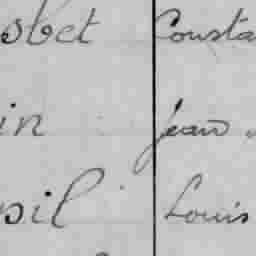 sbet Consta
in jean
sil Louis